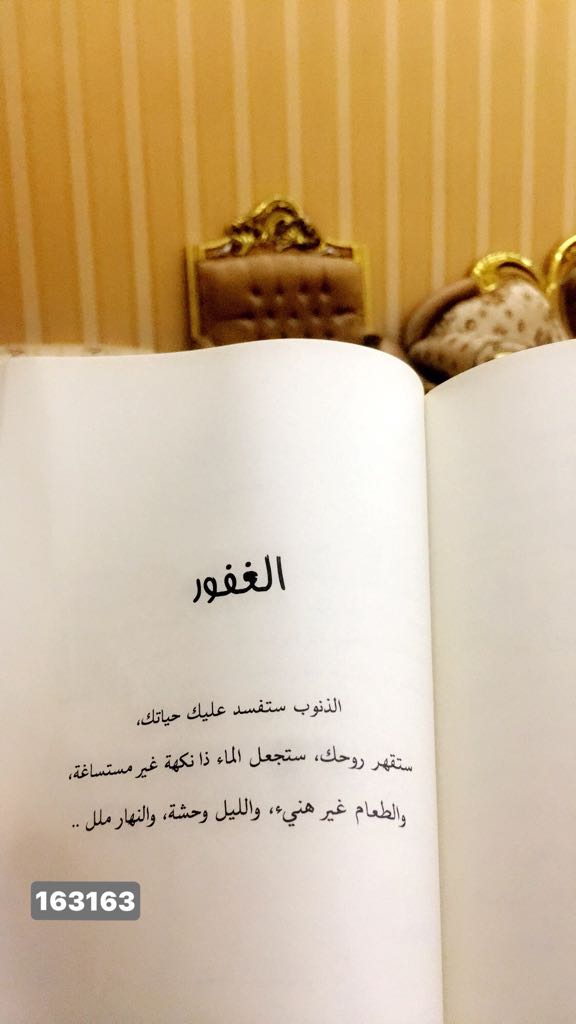 الغفور
الذنوب ستفسد عليك حياتك،
ستقهر روحك، ستجعل الماء ذا نكهة غير مستساغة،
والطعام غير هنيء، والليل وحشة، والنهار ملل ..
163163